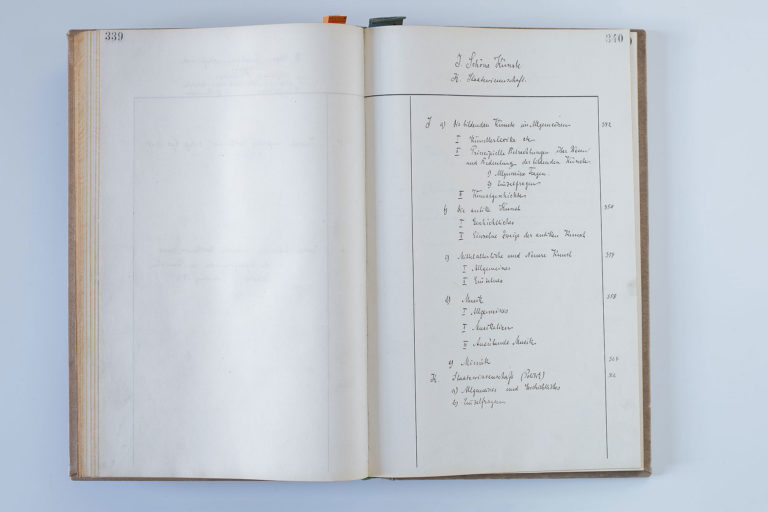 339
340
J Schöne Künste
K. Staatswissenschaft.
J a) Die bildenden Künste im Allgemeinen 342
I Künstlerlexika etc.
II Prinzipielle Betrachtungen über Wesen
und Bedeutung der bildenden Künste.
1) Allgemeine Fragen
2) Einzelfragen
III Kunstgeschichte
b) Die antike Kunst
I Geschichtliches
II Einzelne Zweige der antiken Kunst
c) Mittelalterliche und Neuere Kunst
I Allgemeines
II Einzelnes
d) Musik 358
I Allgemeines
II Musikalien
III Ausübende Musik
e) Mimik
K. Staatswissenschaft (Politik)
a) Allgemeines und Geschichtliches
b) Einzelfragen